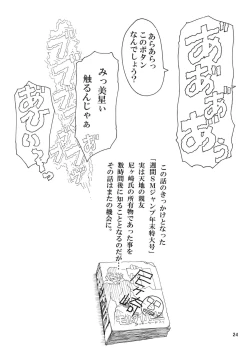 あ゛あ゛ぁ
あぁっ
あらあらっ
このボタン
なんでしょう?
みっ美星ぃ
触るんじゃぁ
ブブブブブブ
あひぃ〜っ
この話のきっかけとなった
「週間SMジャンプ年末特大号」
実は天地の親友
尼ヶ崎氏の所有物であった事を
数時間後に知ることとなるのだが
その話はまたの機会に。
尼ヶ崎
24